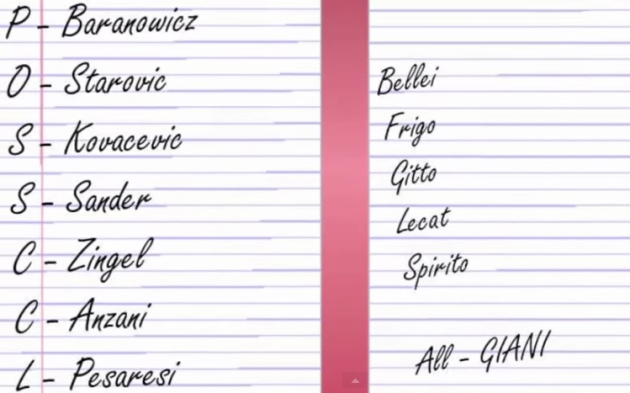 P - Baranowicz
O - Starovic
S - Kovacevic
S - Sander
C - Zingel
C - Anzani
L - Pesaresi
Bellei
Frigo
Gitto
Lecat
Spirito
All - GIANI